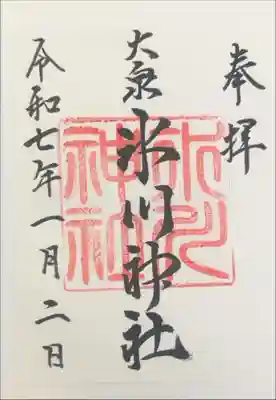 奉拝
大泉
氷川神社
氷川神社
令和七年一月二日